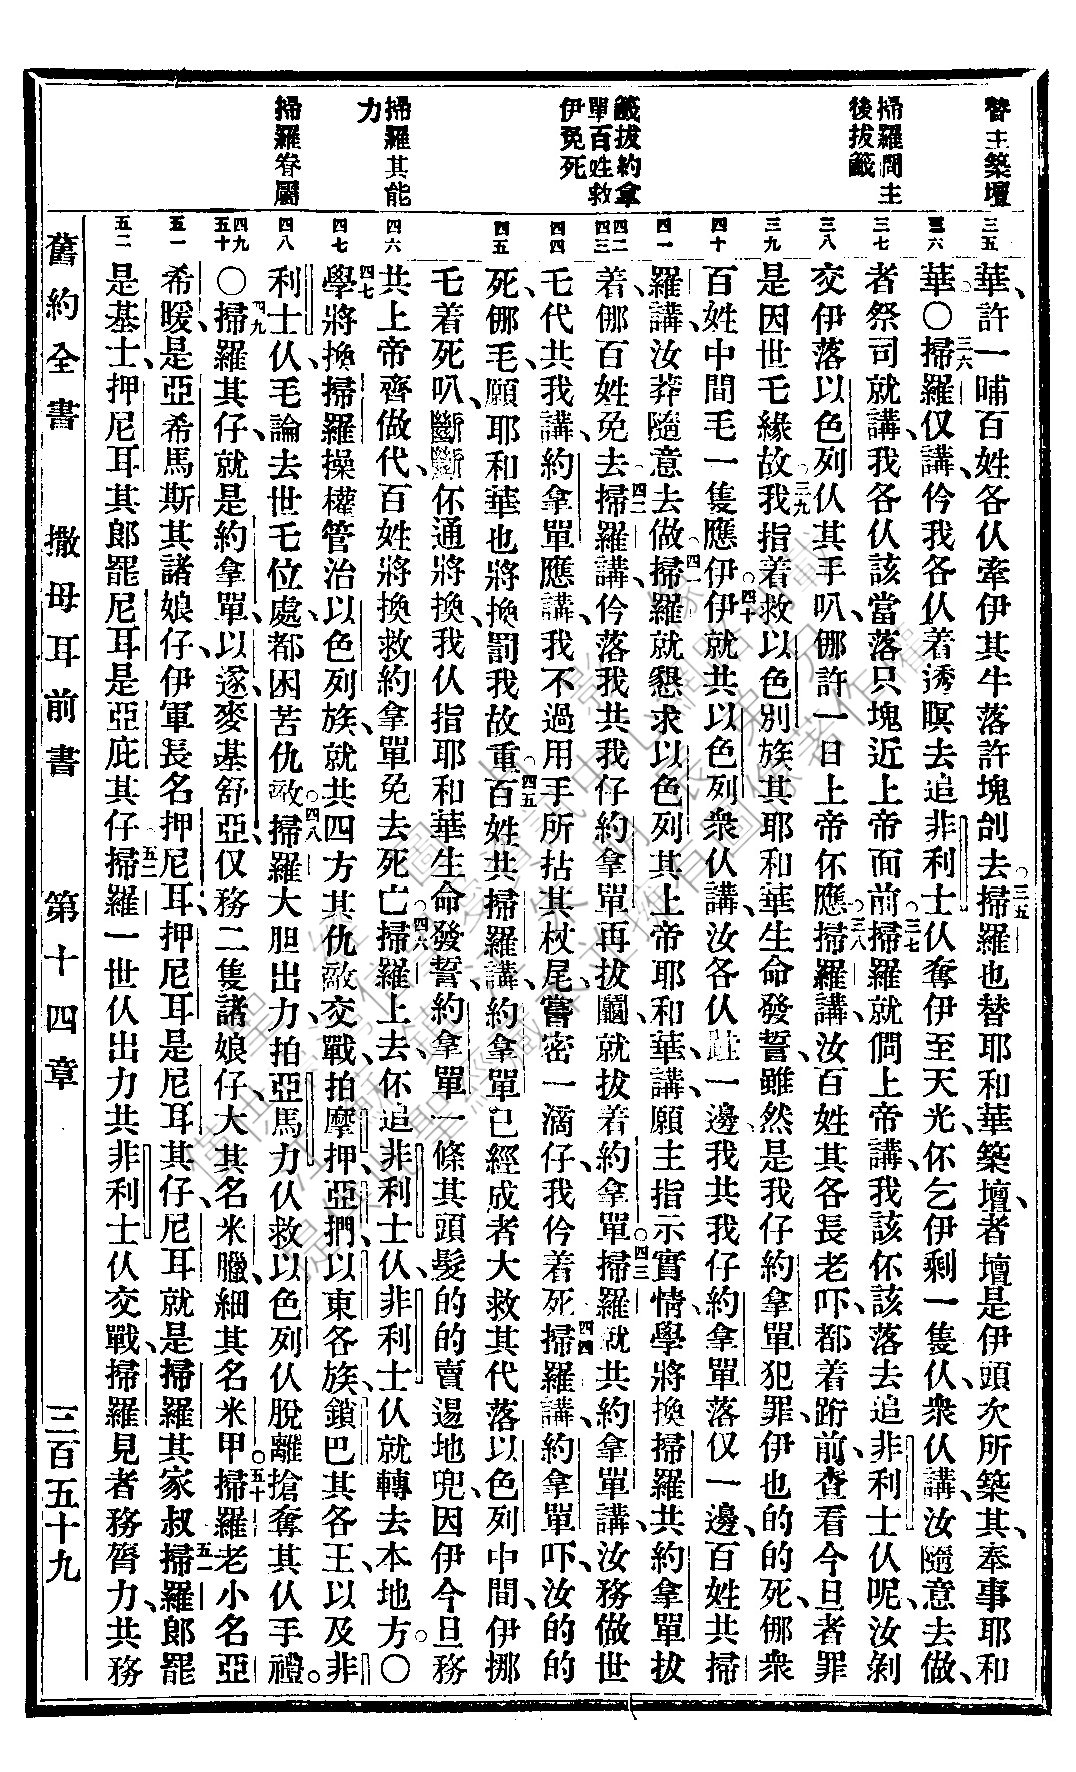 替主築壇
掃羅問主
後拔籤
籤拔約拿
單百姓救
伊免死
掃羅其能
力
掃羅眷屬
三五
三六
三七
三八
三九
四十
四一
四二
四三
四四
四五
四六
四七
四八
四九
五十
五一
五二
華、許一晡百姓各仈牽伊其牛落許塊刣去○三五掃羅也替耶和華築壇、者壇是伊頭次所築其、奉事耶和
華○三六掃羅仅講、仱我各仈着透暝去追非利士仈奪伊至天光、伓乞伊剩一隻仈、衆仈講、汝隨意去做、
者祭司就講、我各仈該當落只塊近上帝面前○三七掃羅就問上帝講、我該伓該落去追非利士仈呢、汝剝
交伊落以色列仈其手叭、㑚許一日上帝伓應○三八掃羅講、汝百姓其各長老吓、都着跻前、查看今旦者罪
是因世乇緣故○三九我指着救以色別族其耶和華生命發誓、雖然是我仔約拿單犯罪、伊也的的死、㑚衆
百姓中間毛一隻應伊○四十伊就共以色列衆仈講、汝各仈跬一邊、我共我仔約拿單落仅一邊、百姓共掃
羅講、汝莽隨意去做○四一掃羅就懇求以色列其上帝耶和華、講、願主指示實情、學將換掃羅共約拿單拔
着、㑚百姓免去○四二掃羅講、仱落我共我仔約拿單再拔鬮、就拔着約拿單○四三掃羅就共約拿單講、汝務做世
乇代共我講、約拿單應講、我不過用手所拈其杖尾、嘗密一滴仔、我仱着死○四四掃羅講、約拿單吓、汝的的
死、㑚毛、願耶和華也將換罰我故重○四五百姓共掃羅講、約拿單已經成者大救其代落以色列中間、伊挪
乇着死叭、斷斷伓通將換、我仈指耶和華生命發誓、約拿單一條其頭髮的的賣逿地兜、因伊今旦務
共上帝齊做代、百姓將換救約拿單免去死亡○四六掃羅上去、伓追非利士仈、非利士仈就轉去本地方○○
四七學將換掃羅操權管治以色列族、就共四方其仇敵交戰、拍摩押、亞捫、以東各族、鎖巴其各王、以及非
利士仈、毛論去世乇位處、都困苦仇敵○四八掃羅大胆出力、拍亞馬力仈、救以色列仈脫離搶奪其仈手禮○
四九○掃羅其仔、就是約拿單、以遂、麥基舒亞、仅務二隻諸娘仔、大其名米臘、細其名米甲○五十掃羅老小名亞
希暖、是亞希馬斯其諸娘仔、伊軍長名押尼耳、押尼耳是尼耳其仔、尼耳就是掃羅其家叔○五一掃羅郎罷
是基士、押尼耳其郎罷尼耳、是亞庇其仔○五二掃羅一世仈出力共非利士仈交戰、掃羅見者務膂力、共務
舊約全書　撒母耳前書　第十四章　三百五十九